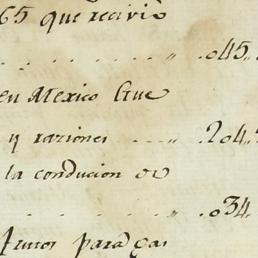 65 que recivio
. . . . . . . . " .045.
en Mexico que
y raziones . . . . " 204.
la conducion de
. . . . . . . . " .034.
frutos para